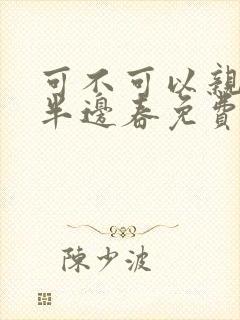 可不可以親
半邊春免費
陳少波